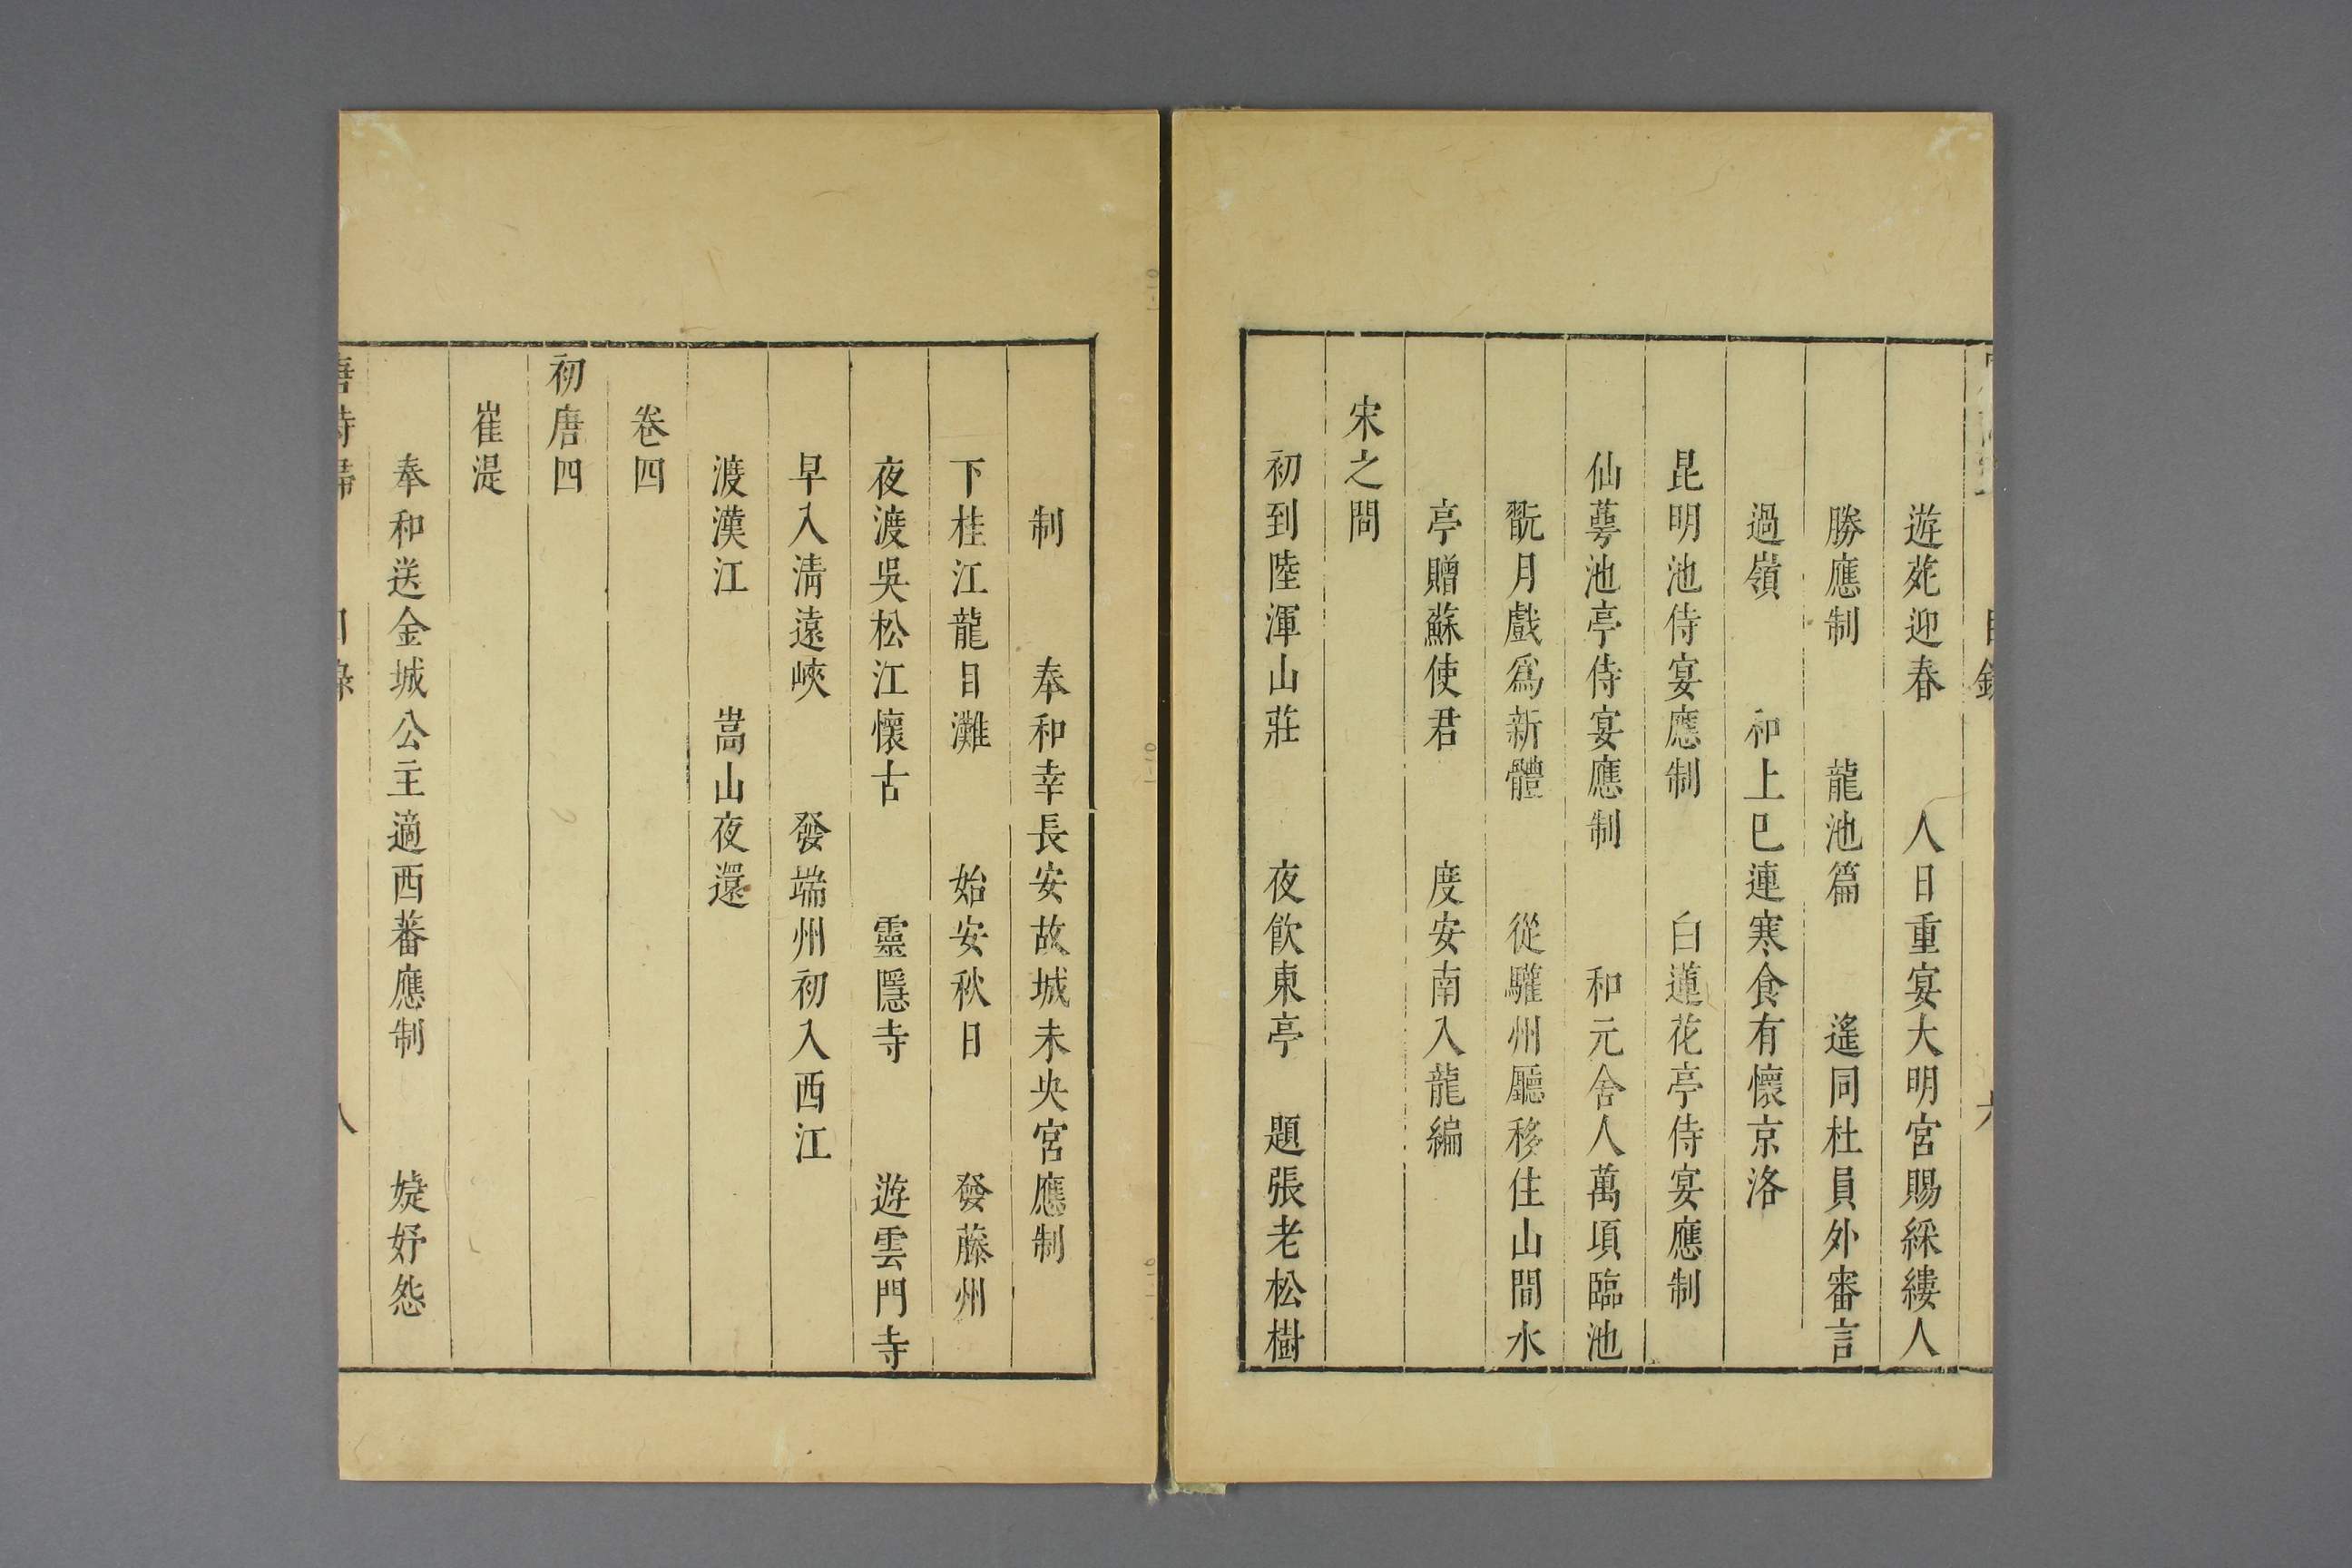 目錄
遊苑迎春 人日重宴大明宮賜綵縷人
勝應制 龍池篇 遙同杜員外審言
過嶺 和上巳連寒食有懷京洛
昆明池侍宴應制 白蓮花亭侍宴應制
仙萼池亭侍宴應制 和元舍人萬頃臨池
翫月戲爲新體 從驩州廳移住山間水
亭贈蘇使君 度安南入龍編
宋之問
初到陸渾山莊 夜飲東亭 題張老松樹
制 奉和幸長安故城未央宮應制
下桂江龍目灘 始安秋日 發藤州
夜渡吳松江懷古 靈隱寺 遊雲門寺
早入清遠峽 發端州初入西江
渡漢江 嵩山夜還
卷四
初唐四
崔湜
奉和送金城公主適西蕃應制 婕妤怨
唐詩歸 目錄 八